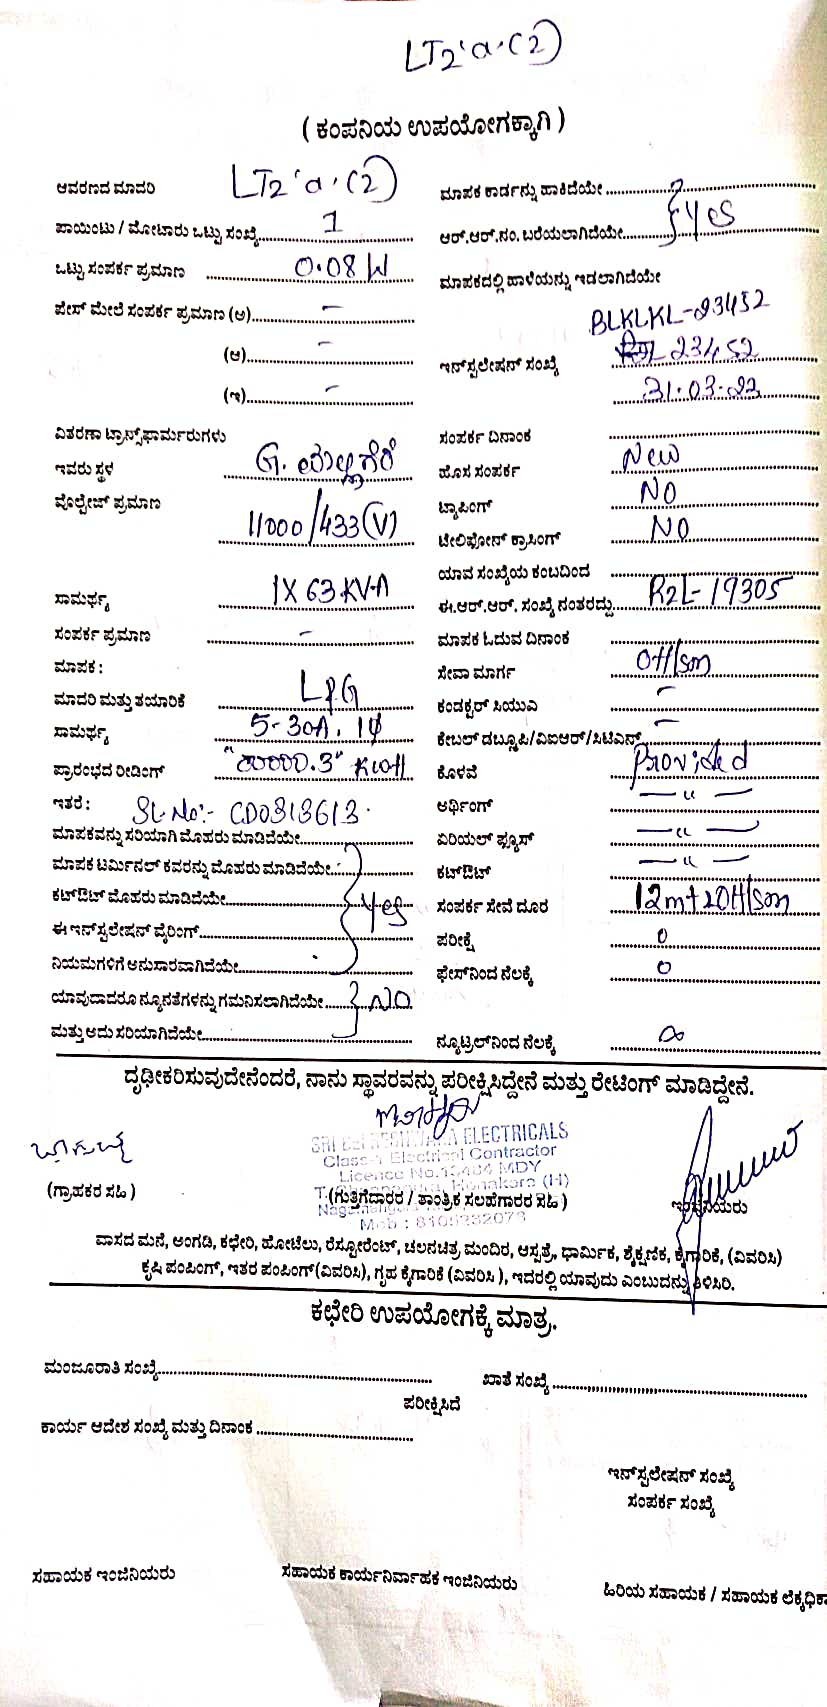 LT2'a.(2)
( ಕಂಪನಿಯ ಉಪಯೋಗಕ್ಕಾಗಿ )
ಆವರಣದ ಮಾದರಿ LT2'a.(2)
ಪಾಯಿಂಟು / ಮೋಟಾರು ಒಟ್ಟು ಸಂಖ್ಯೆ 1
ಒಟ್ಟು ಸಂಪರ್ಕ ಪ್ರಮಾಣ 0.08 W
ಪೇಸ್ ಮೇಲೆ ಸಂಪರ್ಕ ಪ್ರಮಾಣ (ಅ) –
(ಆ) –
(ಇ) –
ವಿತರಣಾ ಟ್ರಾನ್ಸ್‌ಫಾರ್ಮರುಗಳು
ಇವರು ಸ್ಥಳ
ವೊಲ್ಟೇಜ್ ಪ್ರಮಾಣ
11000/433(V)
ಸಾಮರ್ಥ್ಯ 1X63KVA
ಸಂಪರ್ಕ ಪ್ರಮಾಣ –
ಮಾಪಕ :
ಮಾದರಿ ಮತ್ತು ತಯಾರಿಕೆ L&G
ಸಾಮರ್ಥ್ಯ 5-30A. 1φ
ಪ್ರಾರಂಭದ ರೀಡಿಂಗ್ "00000.3" KWH
ಇತರೆ : SL.No:- CD0313613.
ಮಾಪಕವನ್ನು ಸರಿಯಾಗಿ ಮೊಹರು ಮಾಡಿದೆಯೇ
ಮಾಪಕ ಟರ್ಮಿನಲ್ ಕವರನ್ನು ಮೊಹರು ಮಾಡಿದೆಯೇ
ಕಟ್‌ಔಟ್ ಮೊಹರು ಮಾಡಿದೆಯೇ Yes
ಈ ಇನ್‌ಸ್ಟಲೇಷನ್ ವೈರಿಂಗ್
ನಿಯಮಗಳಿಗೆ ಅನುಸಾರವಾಗಿದೆಯೇ
ಯಾವುದಾದರೂ ನ್ಯೂನತೆಗಳನ್ನು ಗಮನಿಸಲಾಗಿದೆಯೇ NO
ಮತ್ತು ಅದು ಸರಿಯಾಗಿದೆಯೇ
ಮಾಪಕ ಕಾರ್ಡನ್ನು ಹಾಕಿದೆಯೇ
ಆರ್.ಆರ್.ನಂ. ಬರೆಯಲಾಗಿದೆಯೇ Yes
ಮಾಪಕದಲ್ಲಿ ಹಾಳೆಯನ್ನು ಇಡಲಾಗಿದೆಯೇ
BLKLKL-23452
ಇನ್‌ಸ್ಟಲೇಷನ್ ಸಂಖ್ಯೆ 23452
31.03.23
ಸಂಪರ್ಕ ದಿನಾಂಕ
ಹೊಸ ಸಂಪರ್ಕ New
ಟ್ಯಾಪಿಂಗ್ NO
ಟೇಲಿಫೋನ್ ಕ್ರಾಸಿಂಗ್ NO
ಯಾವ ಸಂಖ್ಯೆಯ ಕಂಬದಿಂದ
ಈ.ಆರ್.ಆರ್. ಸಂಖ್ಯೆ ನಂತರದ್ದು RZL-19305
ಮಾಪಕ ಓದುವ ದಿನಾಂಕ
ಸೇವಾ ಮಾರ್ಗ OH/Som
ಕಂಡಕ್ಟರ್ ಸಿಯುವಿ –
ಕೇಬಲ್ ಡಬ್ಲೂಪಿ/ವಿಐಆರ್/ಸಿಟಿಎಸ್ –
ಕೊಳವೆ Provided
ಅರ್ಥಿಂಗ್ — " —
ಏರಿಯಲ್ ಫ್ಯೂಸ್ — " —
ಕಟ್‌ಔಟ್ — " —
ಸಂಪರ್ಕ ಸೇವೆ ದೂರ 12m+20H/Som
ಪರೀಕ್ಷೆ 0
ಫೇಸ್‌ನಿಂದ ನೆಲಕ್ಕೆ 0
ನ್ಯೂಟ್ರಲ್‌ನಿಂದ ನೆಲಕ್ಕೆ ∞
ದೃಢೀಕರಿಸುವುದೇನೆಂದರೆ, ನಾನು ಸ್ಥಾವರವನ್ನು ಪರೀಕ್ಷಿಸಿದ್ದೇನೆ ಮತ್ತು ರೇಟಿಂಗ್ ಮಾಡಿದ್ದೇನೆ.
ELECTRICALS
Class-1 Electrical Contractor
Licence No.13484 MDY
(ಗ್ರಾಹಕರ ಸಹಿ )
(ಗುತ್ತಿಗೆದಾರರ / ತಾಂತ್ರಿಕ ಸಲಹೆಗಾರರ ಸಹಿ )
ಇಂಜಿನಿಯರು
Mob : 8105232073
ವಾಸದ ಮನೆ, ಅಂಗಡಿ, ಕಛೇರಿ, ಹೋಟೆಲು, ರೆಸ್ಟೋರೆಂಟ್, ಚಲನಚಿತ್ರ ಮಂದಿರ, ಆಸ್ಪತ್ರೆ, ಧಾರ್ಮಿಕ, ಶೈಕ್ಷಣಿಕ, ಕೈಗಾರಿಕೆ, (ವಿವರಿಸಿ)
ಕೃಷಿ ಪಂಪಿಂಗ್, ಇತರ ಪಂಪಿಂಗ್(ವಿವರಿಸಿ), ಗೃಹ ಕೈಗಾರಿಕೆ (ವಿವರಿಸಿ ), ಇದರಲ್ಲಿ ಯಾವುದು ಎಂಬುದನ್ನು ತಿಳಿಸಿರಿ.
ಕಛೇರಿ ಉಪಯೋಗಕ್ಕೆ ಮಾತ್ರ.
ಮಂಜೂರಾತಿ ಸಂಖ್ಯೆ
ಖಾತೆ ಸಂಖ್ಯೆ
ಪರೀಕ್ಷಿಸಿದೆ
ಕಾರ್ಯ ಆದೇಶ ಸಂಖ್ಯೆ ಮತ್ತು ದಿನಾಂಕ
ಇನ್‌ಸ್ಟಲೇಷನ್ ಸಂಖ್ಯೆ
ಸಂಪರ್ಕ ಸಂಖ್ಯೆ
ಸಹಾಯಕ ಇಂಜಿನಿಯರು
ಸಹಾಯಕ ಕಾರ್ಯನಿರ್ವಾಹಕ ಇಂಜಿನಿಯರು
ಹಿರಿಯ ಸಹಾಯಕ / ಸಹಾಯಕ ಲೆಕ್ಕಧಿಕಾ